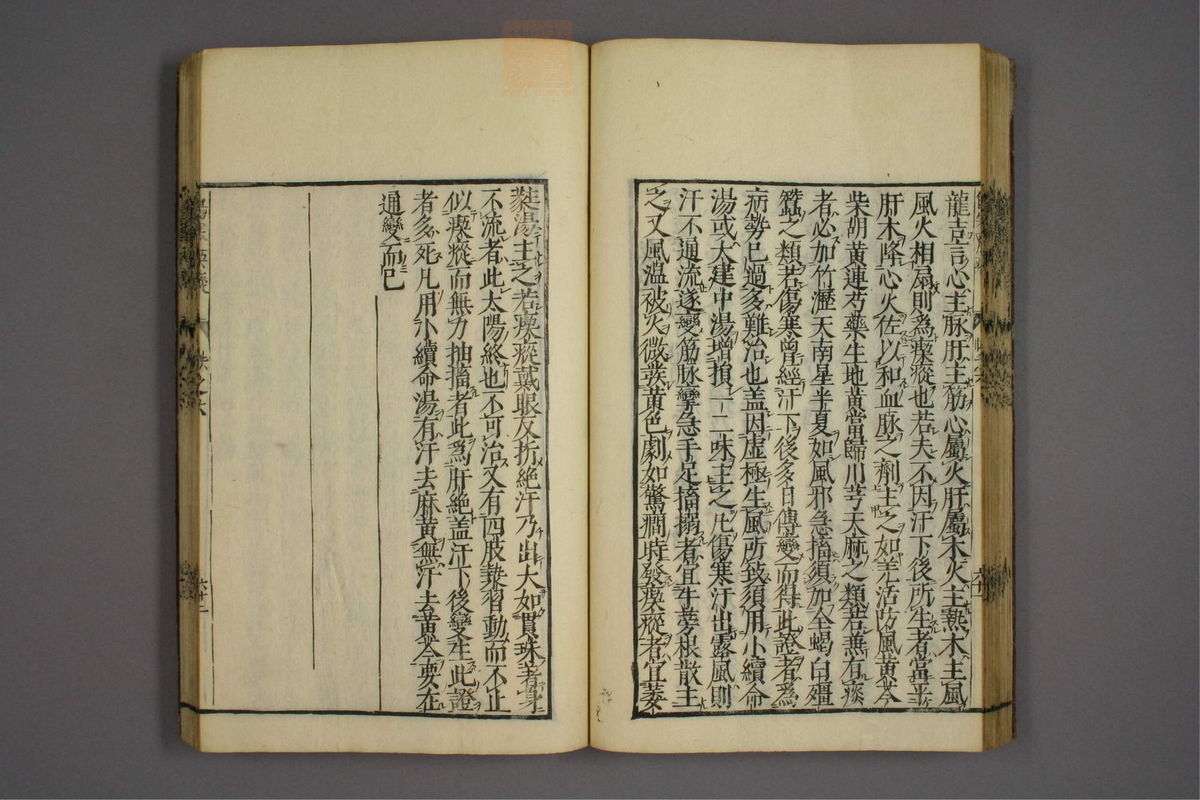 龍言心主脉肝主筋心屬火肝屬木火主熱木主風
風火相扇則爲瘈瘲也若夫不因汗下後所生者當平
肝木降心火佐以和血脉之劑主之如羌活防風黄芩
柴胡黄連芍藥生地黄當歸川芎天麻之類若無有痰
者必加竹瀝天南星半夏如風邪急搐須加全蝎白殭
蠶之類若傷寒曾經汗下後多日傳變而得此證者爲
病勢已過多難治也盖因虚極生風所致須用小續命
湯或大建中湯增損一二味主之凡傷寒汗出露風則
汗不通流遂變筋脉攣急手足搐搦者宜牛蒡根散主
之又風温被火微發黄色劇如驚癎時發瘈瘲者宜萎
蕤湯主之若瘈瘲戴眼反折絶汗乃出大如貫珠著身
不流者此太陽終也不可治又有四肢漐習動而不止
似瘈瘲而無力抽搐者此爲肝絶盖汗下後變生此證
者多死凡用小續命湯有汗去麻黄無汗去黄芩要在
通變而已
六十二